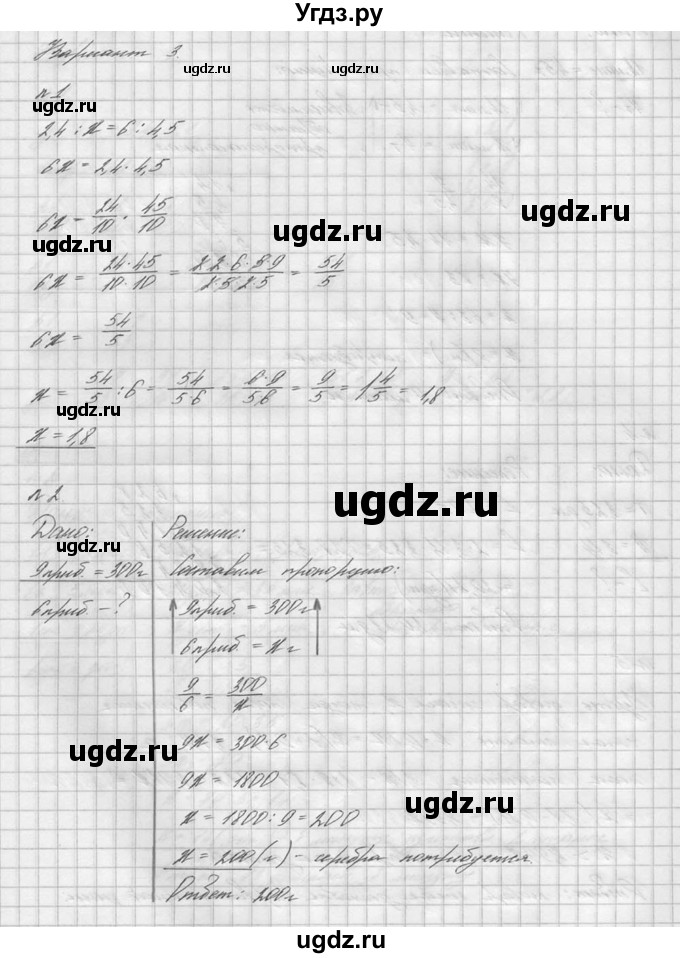 Угдз.ру
Вариант 3.
ugdz.ru
n1
ugdz.ru
2,4 : x = 6 : 4,5
6x = 2,4 · 4,5
6x = 24/10 · 45/10
ugdz.ru
ugdz.ru
ugdz.ru
6x = 24·45/10·10 = 2·2·6·5·9/2·5·2·5 = 54/5
6x = 54/5
x = 54/5 : 6 = 54/5·6 = 6·9/5·6 = 9/5 = 1 4/5 = 1,8
ugdz.ru
x = 1,8
n2
ugdz.ru
Дано: Решение:
ugdz.ru
9приб. = 300г Составим пропорцию:
6приб – ? 9приб. = 300г
6приб = x г
9/6 = 300/x
9x = 300·6
ugdz.ru
9x = 1800
ugdz.ru
x = 1800 : 9 = 200
x = 200(г) – серебра потребуется.
Ответ: 200г
ugdz.ru